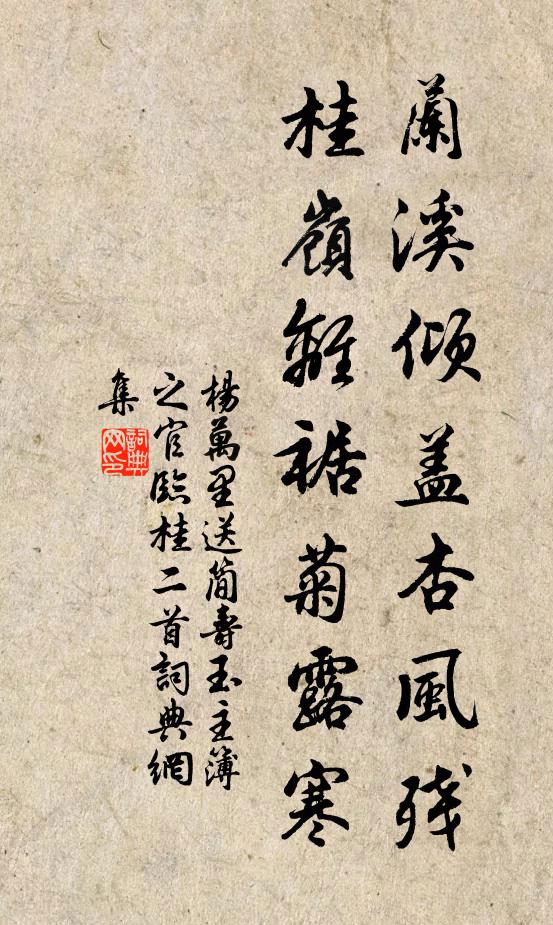 蘭溪傾蓋杏風殘
桂嶺離裾菊露寒
楊萬里送簡壽玉主簿
之官臨桂二首詞典網
集
詞典
网印